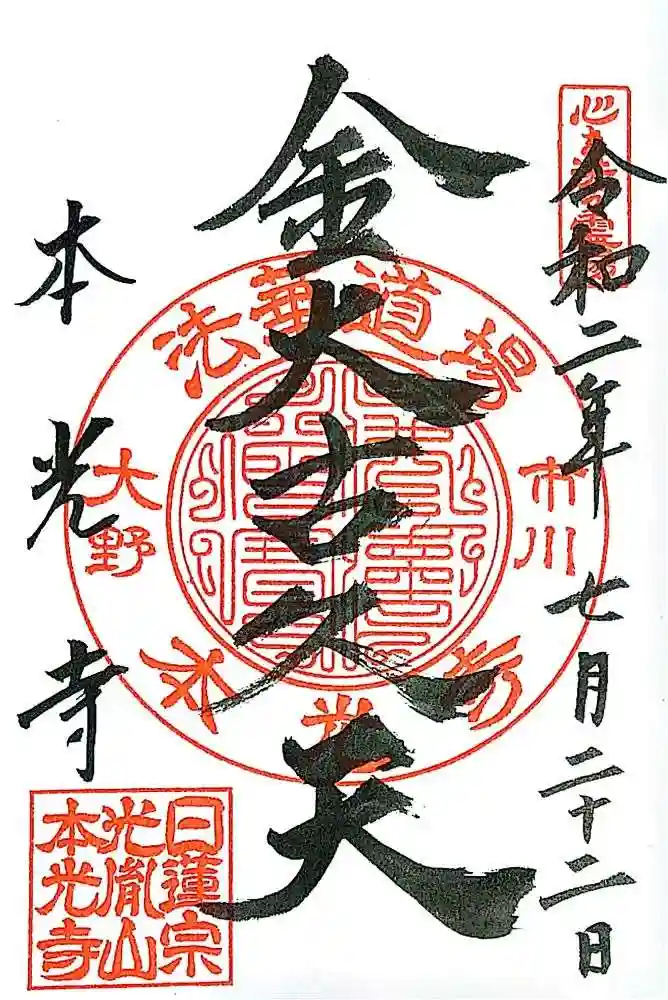 令和二年七月二十二日
金大古久天
本光寺
法華道場
市川
大野
本光寺
日蓮宗
光胤山
本光寺